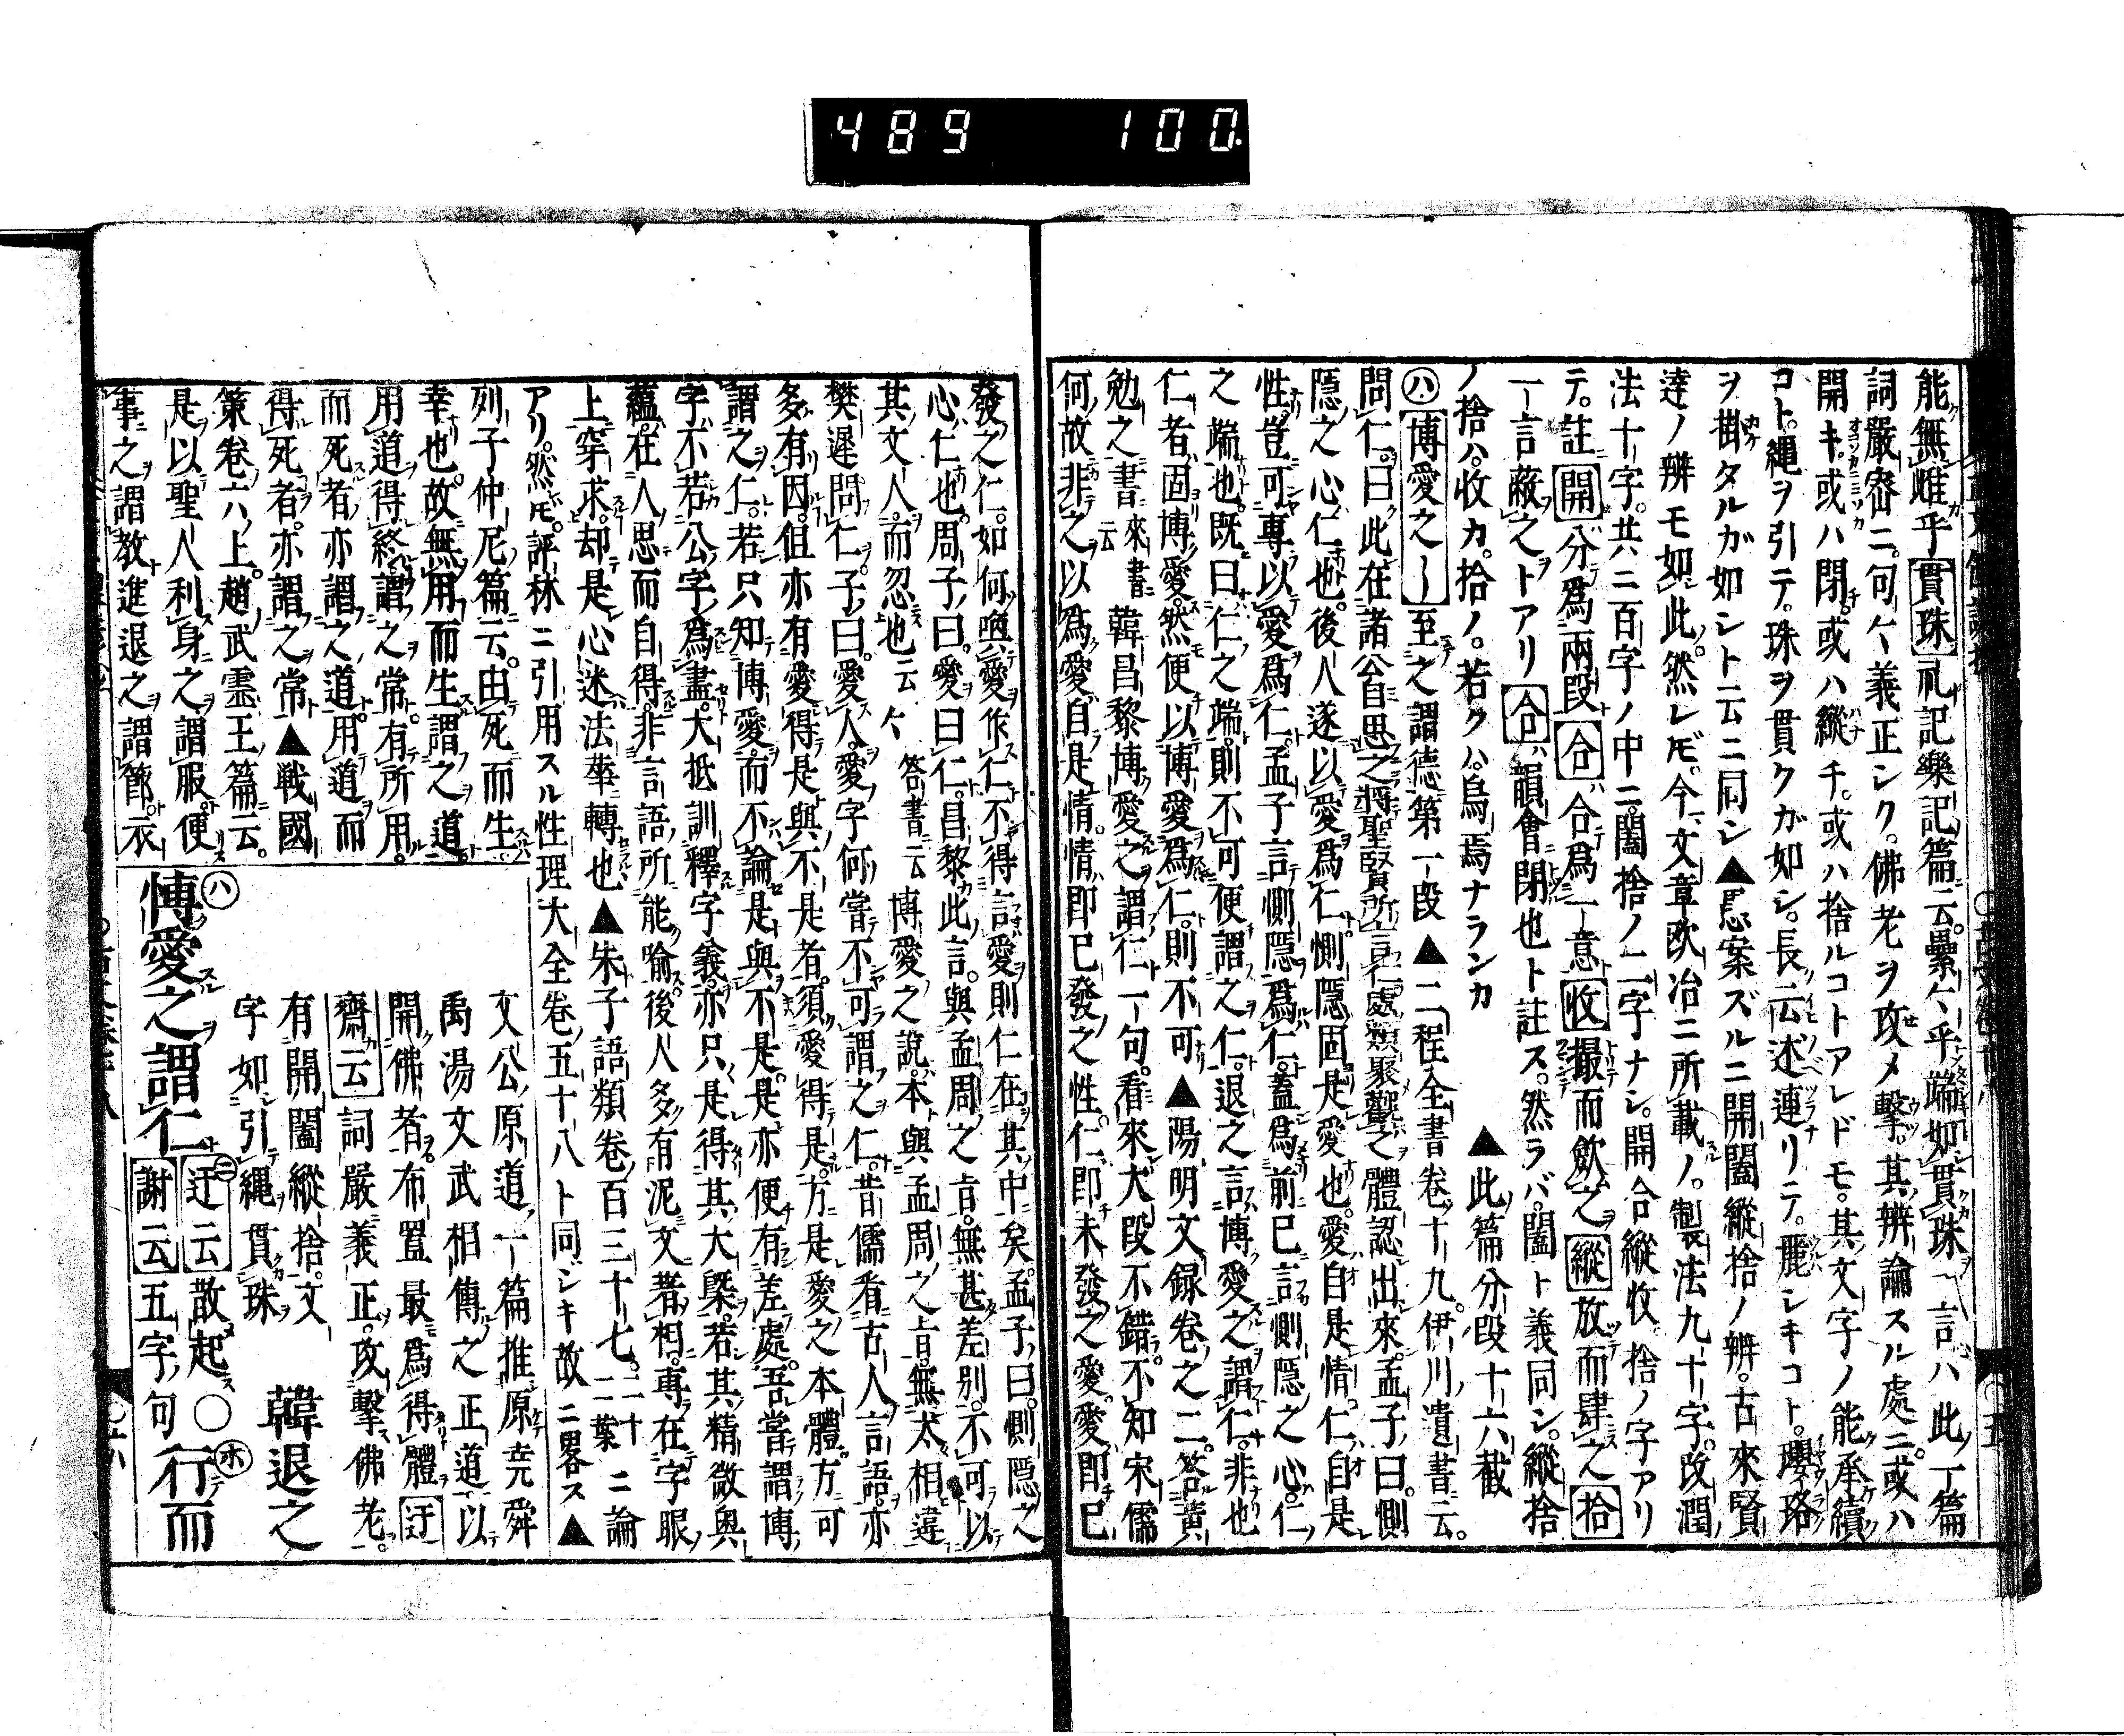 489 100
能無雌乎貫珠礼記樂記篇云纍々乎端如貫珠言ハ此一篇
詞嚴密ニ句々義正シク佛老ヲ攻メ擊其辨論スル處ニ或ハ
開キ或ハ閉或ハ縱チ或ハ捨ルコトアレドモ其文字ノ能承續
コト繩ヲ引テ珠ヲ貫クガ如シ長云述連リテ麗シキコト瓔珞
ヲ掛タルガ如シト云ニ同シ▲愚案ズルニ開闔縱捨ノ辨古來賢
達ノ辨モ如此然レドモ今文章欧冶ニ所載ノ製法九十字改潤
法十字共二百字ノ中ニ闔捨ノ二字ナシ開合縱收捨ノ字アリ
テ註開分爲兩段合合爲一意收撮而歛之縱放而肆之拾
一言蔽之トアリ合韻會閉也ト註ス然ラバ闔ト義同シ縱捨
ノ捨ハ收カ拾ノ若クハ烏焉ナランカ ▲此篇分段十六截
ハ博愛之ー至之謂德第一段▲二程全書卷十九伊川遺書云
問仁曰此在諸公自思之將聖賢所言仁處類聚觀之體認出來孟子曰惻
隱之心仁也後人遂以愛爲仁惻隱固是愛也愛自是情仁自是
性豈可專以愛爲仁孟子言惻隱爲仁蓋爲前已言惻隱之心仁
之端也既曰仁之端則不可便謂之仁退之言博愛之謂仁非也
仁者固博愛然便以博愛爲仁則不可▲陽明文録卷之二答黃
勉之書來書云韓昌黎博愛之謂仁一句看來大段不錯不知宋儒
何故非之以爲愛自是情情即已發之性仁即未發之愛愛即已
發之仁如何喚愛作仁不得言愛則仁在其中矣孟子曰惻隱之
心仁也周子曰愛曰仁昌黎此言與孟周之旨無甚差別不可以
其文人而忽也云々 答書云博愛之説本與孟周之旨無太相違
樊遲問仁子曰愛人愛字何嘗不可謂之仁昔儒看古人言語亦
多有因但亦有愛得是與不是者須愛得是方是愛之本體方可
謂之仁若只知博愛而不論是與不是是亦便有差處吾嘗謂博
字不若公字爲盡大抵訓釋字義亦只是得其大槩若其精微奧
蘊在人思而自得非言語所能喩後人多有泥文著相專在字眼
上穿求却是心迷法華轉也▲朱子語類卷百三十七二十二葉ニ論
アリ然モ評林ニ引用スル性理大全卷五十八ト同シキ故ニ畧ス▲
列子仲尼篇云由死而生
幸也故無用而生謂之道
用道得終謂之常有所用
而死者亦謂之道用道而
得死者亦謂之常▲戰國
策卷六上趙武霊王篇云
是以聖人利身之謂服便
事之謂教進退之謂節衣
文公原道一篇推原堯舜
禹湯文武相傳之正道以
開佛者布置最爲得體迂
齋云詞嚴義正攻擊佛老
有開闔縱捨文
字如引繩貫珠
韓退之
ハ博愛之謂仁ニ迂云散起謝云五字句○ホ行而